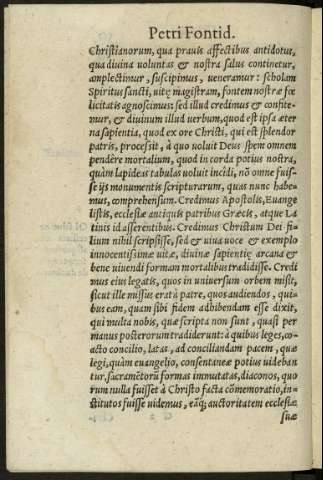 Petri Fontid.
Christianorum, qua prauis affectibus antidotus,
qua diuina voluntas & nostra salus continetur,
amplectimur, suscipimus, veneramur: scholam
Spiritus sancti, uitę magistram, fontem nostræ fœ
licitatis agnoscimus: sed illud credimus & confite-
mur, & diuinum illud verbum, quod est ipsa æter
na sapientia, quod ex ore Christi, qui est splendor
patris, processit, à quo voluit Deus spem omnem
pendere mortalium, quod in corda potius nostra,
quàm lapideas tabulas voluit incidi, nõ omne fuis-
se ijs monumentis scripturarum, quas nunc habe-
mus, comprehensum. Credimus Apostolis, Euange
listis, ecclesiæ antiquis patribus Græcis, atque La
tinis id asserentibus. Credimus Christum Dei fi-
lium nihil scripsisse, sed & uiua uoce & exemplo
innocentissimæ uitæ, diuinæ sapientię arcana &
bene uiuendi formam mortalibus tradidisse. Credi
mus eius legatis, quos in uniuersum orbem misit,
sicut ille missus erat à patre, quos audiendos, qui-
bus eam, quam sibi fidem adhibendam esse dixit,
qui multa nobis, quæ scripta non sunt, quasi per
manus posterorum tradiderunt: à quibus leges, co-
acto concilio, latas, ad conciliandam pacem, quæ
legi, quàm euangelio, consentaneæ potius uideban
tur, sacramẽtorũ formas immutatas, diaconos, quo
rum nulla fuisset à Christo facta cõmemoratio, in-
stitutos fuisse uidemus, eáq; auctoritatem ecclesiæ
suæ